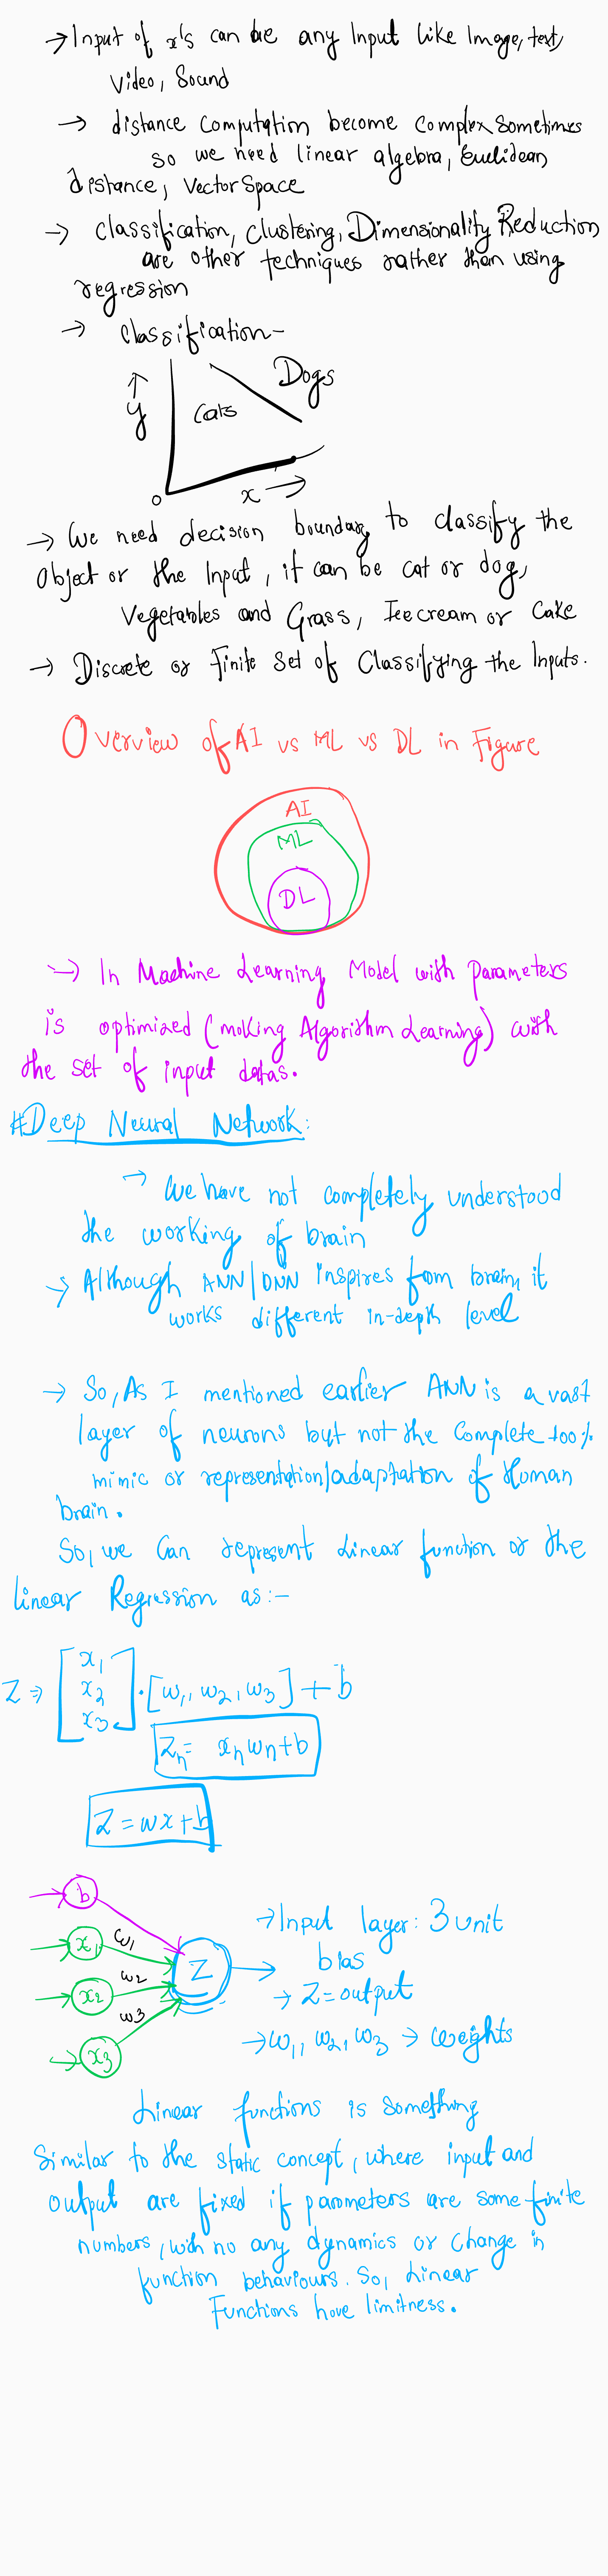 → Input of x's can be any Input like Image, text,
Video, Sound
→ distance Computation become Complex Sometimes
so we need linear algebra, Euclidean
distance, Vector Space
→ classification, Clustering, Dimensionality Reduction
are other techniques rather than using
regression
→ classification-
Dogs
Cats
y
0
x
→ We need decision boundary to classify the
Object or the Input, it can be cat or dog,
Vegetables and Grass, Icecream or Cake
→ Discrete or Finite Set of Classifying the Inputs.
Overview of AI vs ML vs DL in Figure
AI
ML
DL
→ In Machine Learning Model with parameters
is optimized (making Algorithm Learning) with
the set of input datas.
#Deep Neural Network:
→ We have not completely understood
the working of brain
→ Although ANN/DNN inspires from brain, it
works different in-depth level
→ So, As I mentioned earlier ANN is a vast
layer of neurons but not the Complete 100%
mimic or representation/adaptation of Human
brain.
So, we Can represent Linear function or the
linear Regression as:-
Z ⇒ [x1 x2 x3] · [w1, w2, w3] + b
Zn = xnwn+b
Z = wx+b
b
x1 w1
x2 w2
x3 w3
Z
→ Input layer: 3 unit
bias
→ Z = output
→ w1, w2, w3 → weights
Linear functions is something
Similar to the static concept, where input and
output are fixed if parameters are some finite
numbers, with no any dynamics or change in
function behaviours. So, Linear
Functions have limitness.